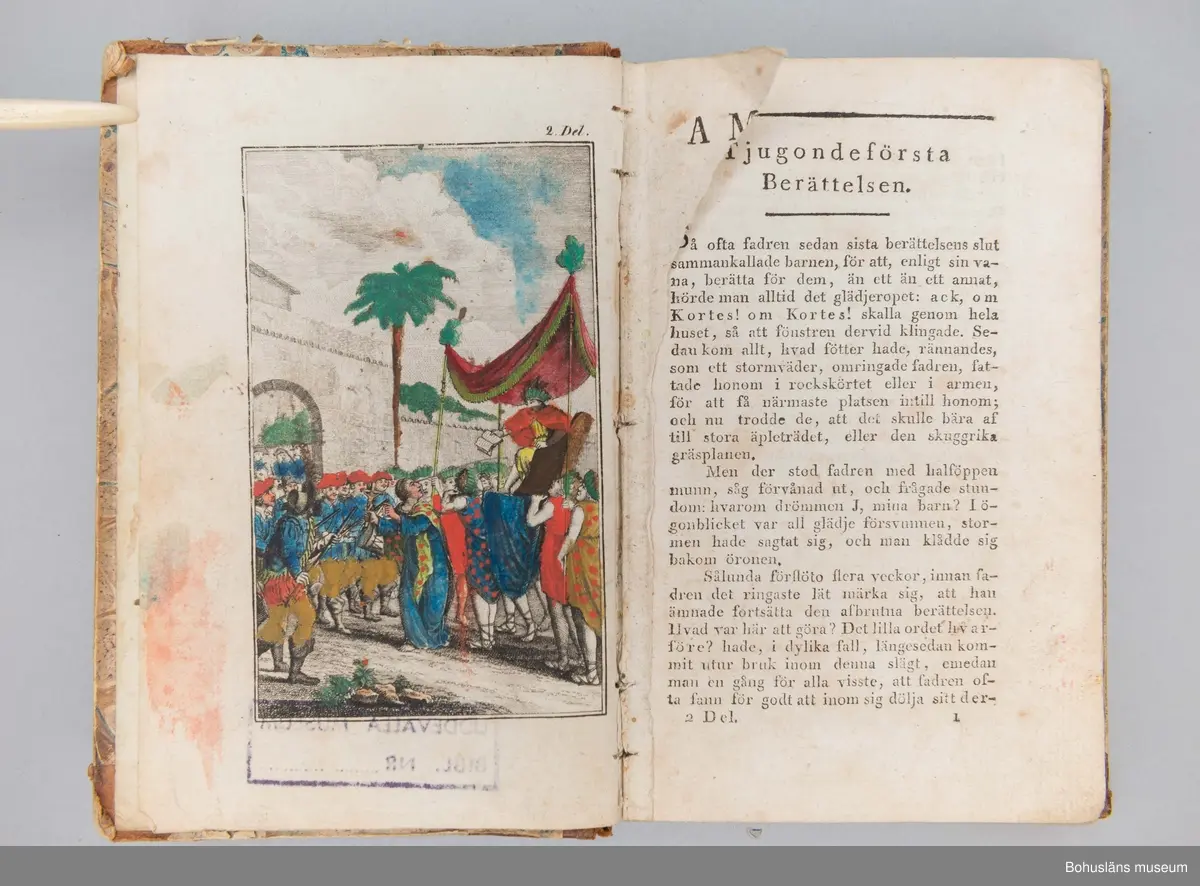 2. Del.
UDDEVALLA MUSEUM
BIBL. NR
A M
Tjugondeförsta
Berättelsen.
Så ofta fadren sedan sista berättelsens slut
sammankallade barnen, för att, enligt sin va-
na, berätta för dem, än ett än ett annat,
hörde man alltid det glädjeropet: ack, om
Kortes! om Kortes! skalla genom hela
huset, så att fönstren dervid klingade. Se-
dan kom allt, hvad fötter hade, rännandes,
som ett stormväder, omringade fadren, fat-
tade honom i rockskörtet eller i armen,
för att få närmaste platsen intill honom;
och nu trodde de, att det skulle bära af
till stora äpleträdet, eller den skuggrika
gräsplanen.
Men der stod fadren med halföppen
munn, såg förvånad ut, och frågade stun-
dom: hvarom drömmen J, mina barn? I ö-
gonblicket var all glädje försvunnen, stor-
men hade sagtat sig, och man klådde sig
bakom öronen.
Sålunda förflöto flera veckor, innan fa-
dren det ringaste lät märka sig, att han
ämnade fortsätta den afbrutna berättelsen.
Hvad var här att göra? Det lilla ordet hvar-
före? hade, i dylika fall, längesedan kom-
mit utur bruk inom denna slägt, emedan
man en gång för alla visste, att fadren of-
ta fann för godt att inom sig dölja sitt der-
2 Del. 1
Bohusläns museum